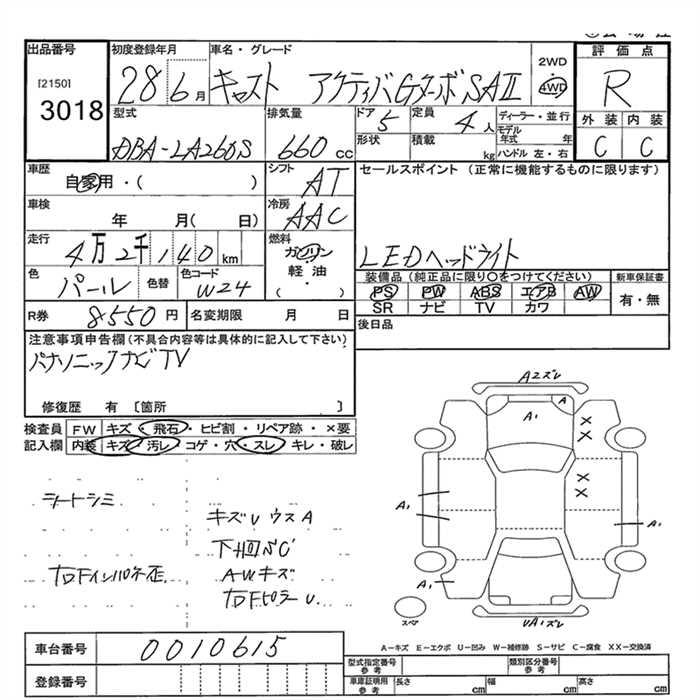 出品番号
[2150]
3018
初度登録年月
28年6月
車名・グレード
キャスト アクティバGターボSAⅡ
2WD
4WD
評価点
R
外装 内装
C C
型式
DBA-LA260S
排気量
660cc
ドア
5
定員
4人
形状
積載
kg
ディーラー・並行
モデル年式 年
ハンドル 左・右
車歴
自家用・( )
シフト
AT
セールスポイント (正常に機能するものに限ります)
LEDヘッドライト
車検
年 月( 日)
冷房
AAC
走行
4万2千140km
燃料
ガソリン
軽油
( )
色
パール
色替
色コード
W24
装備品(純正品に限り○をつけてください)
PS PW ABS エアB AW
SR ナビ TV カワ
新車保証書
有・無
R券
8550円
名変期限 月 日
後日品
注意事項申告欄(不具合内容等は具体的に記入して下さい)
パナソニックナビTV
修復歴 有 〔箇所 〕
検査員
記入欄
FW キズ・飛石・ヒビ割・リペア跡・×要
内装 キズ・汚レ・コゲ・穴・スレ・キレ・破レ
シートシミ
キズUウスA
下回SC
右Fインパネ歪
AWキズ
右FピラーU
A2ズレ
A
A1
A1
A1
A1
スペア
UA1ズレ
A-キズ E-エクボ U-凹み W-補修跡 S-サビ C-腐食 XX-交換済
車台番号
0010615
登録番号
型式指定番号
参考
類別区分番号
参考
車庫証明用
参考
長さ cm
幅 cm
高さ cm